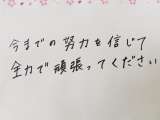 今までの努力を信じて
全力で頑張ってください